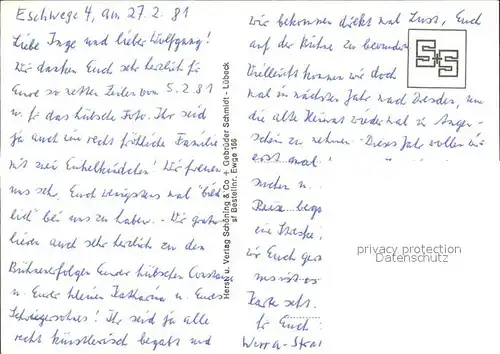 Eschwege 4, am 27.2.81
Liebe Inge und lieber Wolfgang!
Wir danken Euch sehr herzlich für
Eure so netten Zeilen vom 5.2.81
u. für das hübsche Foto. Ihr seid
ja auch ein recht fröhliche Familie
mit zwei Enkelkindchen! Wir freuen
uns sehr, Euch wenigstens mal "bild-
lich" bei uns zu haben. - Wir gratu-
lieren auch sehr herzlich zu den
Bühnenerfolgen Eurer hübschen Constanze
u. Eurer kleinen Katharina u. Eures
Schwiegersohnes! Ihr seid ja alle
recht künstlerisch begabt und
Herst. u. Verlag Schöning & Co + Gebrüder Schmidt - Lübeck
sf Bestellnr. Ewge 168
wir bekommen direkt mal Lust, Euch
auf der Bühne zu bewundern
Vielleicht kommen wir doch
mal im nächsten Jahr nach Dresden, um
die alte Heimat wieder mal in Augen-
schein zu nehmen. Dieses Jahr wollen wir
erst mal
suchen u.
Reise
eine Strecke
wir Euch
S+S
Karte
für Euch
Werra-
privacy protection
Datenschutz